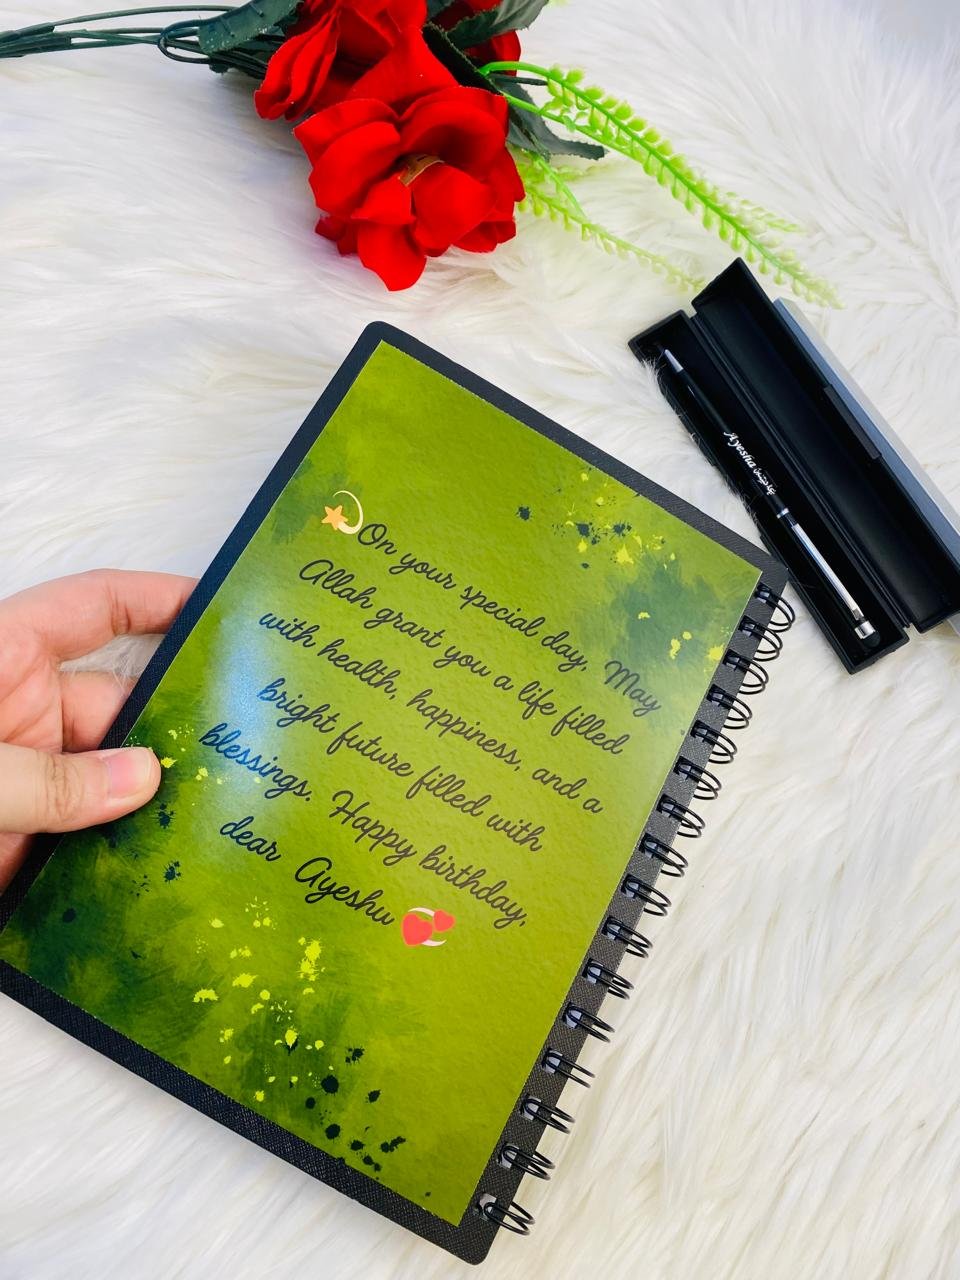 💫On your special day, May
Allah grant you a life filled
with health, happiness, and a
bright future filled with
blessings. Happy birthday,
dear Ayeshu 💞
Ayesha